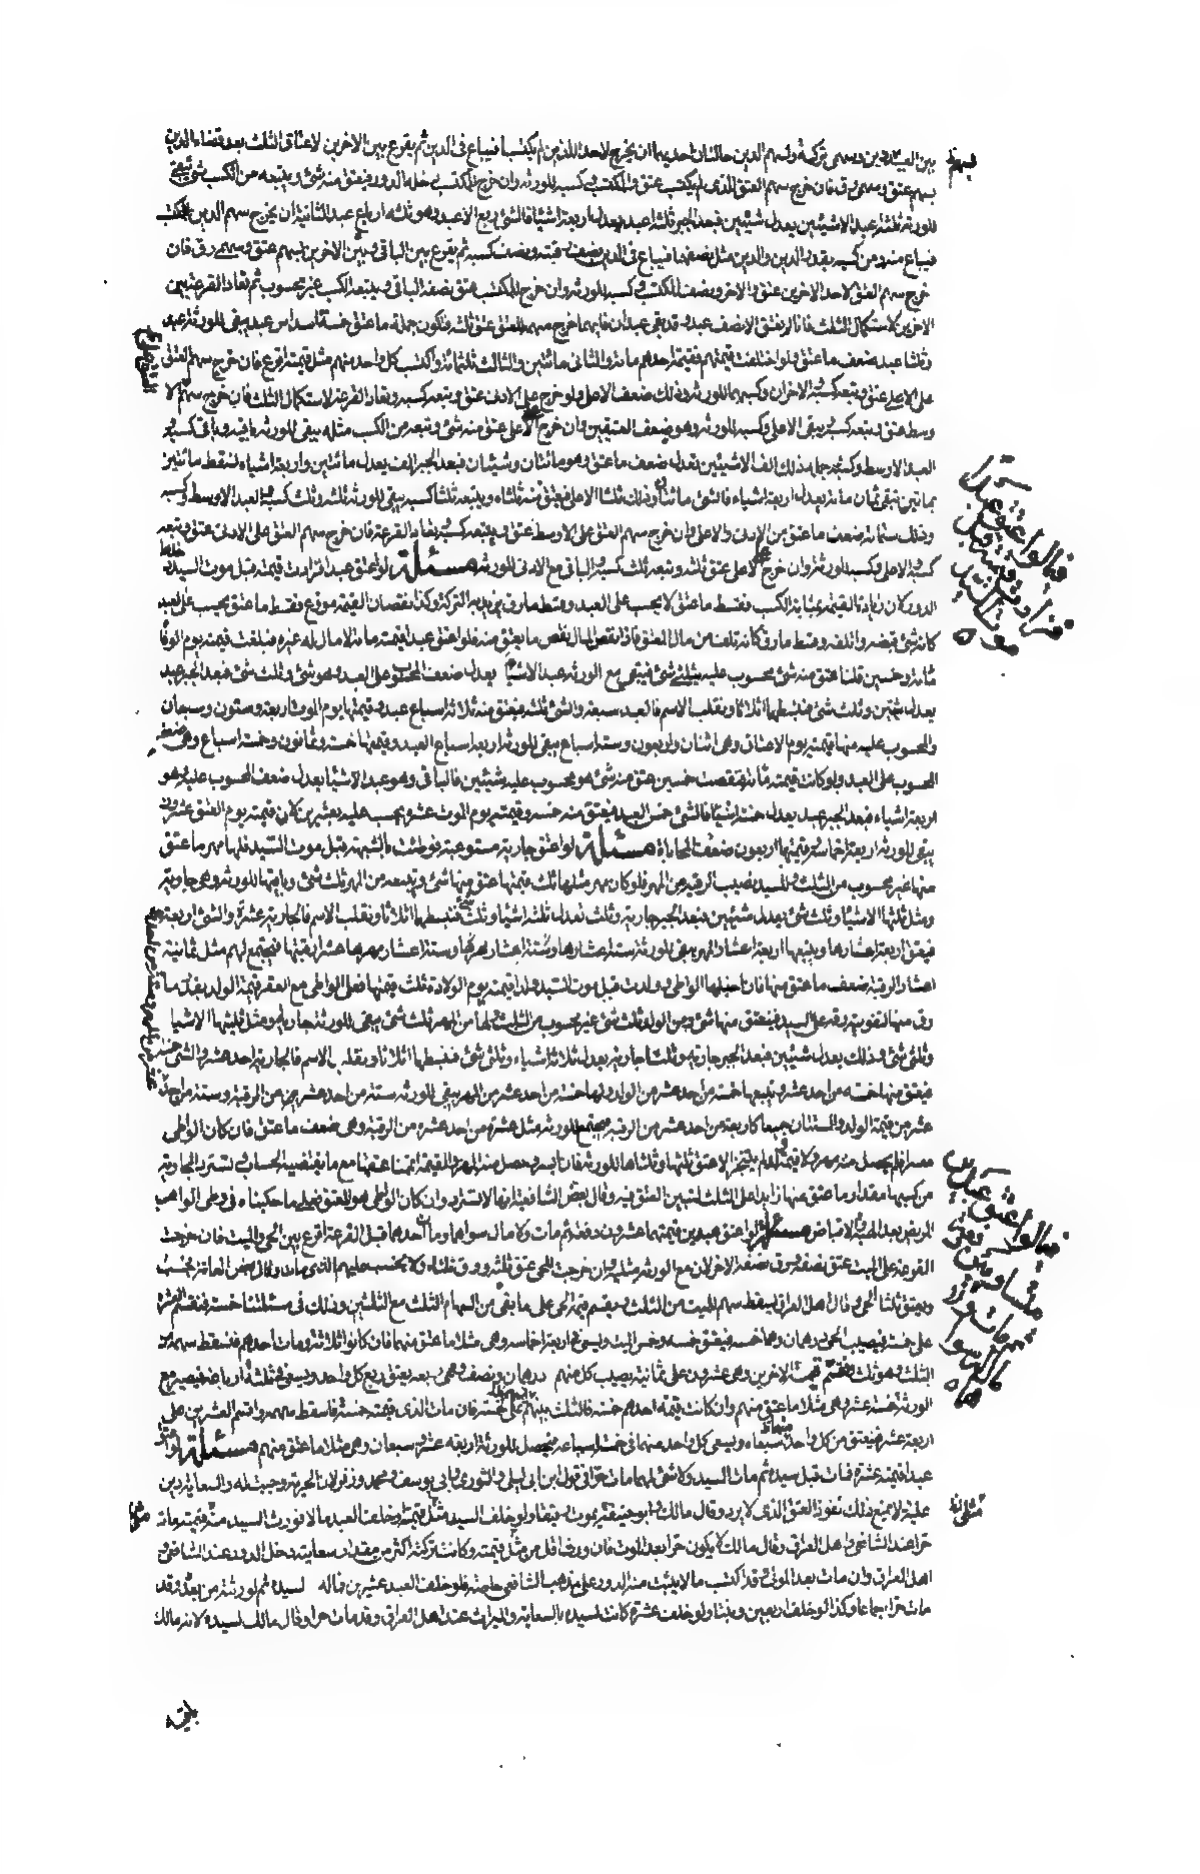 بين العبيد دين وسهمى تركة ولسهم الدين حالتان احديهما ان يخرج لاحد اللذين لم يكتسبا فيباع فى الدين ثم يقرع بين الاخرين لاعتاق الثلث بعد قضاء الدين
بسهم عتق وسهمى رق فان خرج سهم العتق للذى لم يكتسب عتق والمكتسب وكسبه للورثة وان خرج للمكتسب دخله الدور فيعتق منه شئ ويتبعه من الكسب شئ يبقى
للورثة ثلثة اعبد الا شيئين يعدل شيئين فبعد الجبر ثلثة اعبد يعدل اربعة اشيا فالشئ ربع الاعبد وهو ثلثة ارباع عبد الثانية ان يخرج سهم الدين للمكتسب
فيباع منه ومن كسبه بقدر الدين والدين مثل نصفهما فيباع فى الدين نصف رقبته ونصف كسبه ثم يقرع بين الباقى وبين الاخرين بسهم عتق وسهمى رق فان
خرج سهم العتق لاحد الاخرين عتق والاخر ونصف المكتسب وكسبه للورثة وان خرج للمكتسب عتق نصفه الباقى ويتبعه الكسب غير محسوب ثم تعاد القرعة بين
الاخرين لاستكمال الثلث فانا لم نعتق الا نصف عبد وقد بقى عبدان فايهما خرج سهم العتق عتق ثلثه فتكون جملة ما عتق خمسة اسداس عبد يبقى للورثة عبد
وثلثا عبد ضعف ما عتق ولو اختلفت قيمتهم فقيمة احدهم مائة والثانى مائتين والثالث ثلثمائة واكتسب كل واحد منهم مثل قيمته اقرع فان خرج سهم العتق
على الاعلى عتق وتبعه كسبه والاخران وكسبهما للورثة وذلك ضعف الاعلى ولو خرج على الادنى عتق وتبعه كسبه وتعاد القرعة لاستكمال الثلث فان خرج سهم الا
وسط عتق وتبعه كسبه ويبقى الاعلى وكسبه للورثة وهو ضعف العتيقين وان خرج الاعلى عتق منه شئ وتبعه من الكسب مثله يبقى للورثة باقيه وباقى كسبه و
العبد الاوسط وكسبه جملة ذلك الف الا شيئين يعدل ضعف ما عتق وهو مائتان وشيئان فبعد الجبر الف يعدل مائتين واربعة اشياء تسقط مائتين
بمائتين تبقى ثمان مائة يعدل اربعة اشياء فالشئ مائتان وذلك ثلثا الاعلى فيعتق منه ثلثاه ويتبعه ثلثا كسبه يبقى للورثة ثلثه وثلث كسبه والعبد الاوسط وكسبه
وذلك ستمائة ضعف ما عتق من الادنى والاعلى وان خرج سهم العتق على الاوسط عتق ويتبعه كسبه وتعاد القرعة فان خرج سهم العتق على الادنى عتق وتبعه
كسبه والاعلى وكسبه للورثة وان خرج على الاعلى عتق ثلثه وتبعه ثلث كسبه والباقى مع الادنى للورثة مسئلة لو اعتق عبدا فزادت قيمته قبل موت السيد دخله
الدور كان زيادة القيمة بمثابة الكسب فقسط ما عتق لا يحسب على العبد وقسط ما رق يزيد به التركة وكذا نقصان القيمة موزع فقسط ما عتق يحسب على العبد
كانه شئ قبضه واتلفه وقسط ما رق كانه تلف من مال المعتق فاذا نقص المال نقص ما يعتق منه فلو اعتق عبدا قيمته مائة لا مال له غيره فبلغت قيمته يوم الوفا
مائة وخمسين قلنا عتق منه شئ محسوب عليه بثلثى شئ فيبقى مع الورثة عبد الا شيئا يعدل ضعف المحسوب على العبد وهو شئ وثلث شئ فبعد الجبر عبد
يعدل شيئين وثلث شئ فنبسطها اثلاثا ونقلب الاسم فالعبد سبعة والشئ ثلثة فيعتق منه ثلاثة اسباع عبد وقيمتها يوم الموت اربعة وستون وسبعان
والمحسوب عليه منها قيمته يوم الاعتاق وهى اثنان واربعون وستة اسباع يبقى للورثة اربعة اسباع العبد وقيمتها خمسة وثمانون وخمسة اسباع وهى ضعف
المحسوب على العبد ولو كانت قيمته مائة فنقصت خمسين عتق منه شئ هو محسوب عليه شيئين فالباقى وهو عبد الا شيئا يعدل ضعف المحسوب عليه وهو
اربعة اشياء فبعد الجبر عبد يعدل خمسة اشيا فالشئ خمس العبد فيعتق منه خمسه وقيمته يوم الموت عشرة يحسب عليه بعشرين كان قيمته يوم العتق عشرون
يبقى للورثة اربعة اخماسه قيمتها اربعون ضعف المحاباة مسئلة لو اعتق جارية مستوعبة فوطئت بالشبهة قبل موت السيد فلها مهر ما عتق
منها غير محسوب من الثلث وللسيد نصيب الرقبة من المهر فلو كان مهر مثلها ثلث قيمتها عتق منها شئ وتبعه من المهر ثلث شئ وباقيها للورثة وهى جارية
ومثل ثلثها الا شيئا وثلث شئ يعدل شيئين فبعد الجبر جارية وثلث تعدل ثلثة اشيا وثلث شئ فنبسطها اثلاثا ونقلب الاسم فالجارية عشرة والشئ اربعة
فيعتق اربعة اعشارها ويتبعها اربعة اعشار المهر يبقى للورثة ستة اعشارها وستة اعشار مهرها وستة اعشار مهرها عشرا قيمتها فيجتمع لهم مثل ثمانية
اعشار الرقبة ضعف ما عتق منها فان احبلها الواطى وولدت قبل موت السيد ولدا قيمته يوم الولادة ثلث قيمتها فعلى الواطى مع العقر قيمة الولد بقدر ما
رق منها لتقويته رقه على السيد فيعتق منها شئ ومن الولد ثلث شئ غير محسوب من الثلث ولها من المهر ثلث شئ يبقى للورثة جارية ومثل ثلثيها الا شيا
وثلثى شئ وذلك يعدل شيئين فبعد الجبر جارية وثلثا جارية يعدل ثلاثة اشياء وثلثى شئ فنبسطها اثلاثا ونقلب الاسم فالجارية احد عشر والشئ خمسة
فيعتق منها خمسة من احد عشر ويتبعها خمسة من احد عشر من الولد ولها خمسة من احد عشر من المهر يبقى للورثة ستة من احد عشر من الرقبة وستة من احد
عشر من قيمة الولد والستتان جميعا كاربعة من احد عشر من الرقبة فيجتمع للورثة مثل عشرة من احد عشر من الرقبة وهى ضعف ما عتق فان كان الواطى
معسرا فلم يحصل منه مهر ولا قيمة لم يتنجز الا عتق ثلثها وثلثاها للورثة فان ايسر وحصل منه المهر والقيمة اتممنا عتقها مع ما يقتضيه الحساب وتسترد الجارية
من كسبها مقدار ما عتق منها زايدا على الثلث لتبين العتق فيه وقال بعض الشافعية انها لا تسترد وان كان الواطى هو المعتق فعلى ما حكيناه فى وطى الواهب
المريض بعد الهبة والاقباض مسئلة لو اعتق عبدين قيمتهما عشرون دفعة ثم مات ولا مال سواهما ومات احدهما قبل القرعة اقرع بين الحى والميت فان خرجت
القرعة على الميت عتق نصفه ورق نصفه الاخر لان مع الورثة مثليه وان خرجت للحى عتق ثلثه ورق ثلثاه ولا يحتسب عليهم الذى مات وقال بعض العامة يحتسب
ويعتق ثلثا الحى وقال اهل العراق يسقط سهم الميت من الثلث ويقسم قيمة الحى على ما بقى من السهام الثلث مع الثلثين وذلك فى مسئلتنا خمسة فنقسم العشرة
على خمسة فيصيب الحى درهمان وهما خمسه فيعتق خمسه وخمس الميت ويسعى فى اربعة اخماسه وهى مثلا ما عتق منهما فان كانوا ثلاثة ومات احدهم فنسقط سهمه من
الثلث وهو ثلث ونقسم قيمة الاخرين وهى عشرون على ثمانية يصيب كل سهم درهمان ونصف وهى ربعه يعتق ربع كل واحد ويسعى فى ثلثة ارباعه فيصير مع
الورثة خمسة عشر وهى مثلا ما عتق منهم وان كانت قيمة احدهم خمسة فالثلث بينهم على خمسة فان مات الذى قيمته خمسة فاسقط سهمه واقسم العشرين على
اربعة عشر فيعتق من كل واحد سبعاه ويسعى كل واحد منهما فى خمسة اسباعه فيحصل للورثة اربعة عشر وسبعان وهى مثلا ما عتق منهم مسئلة لو اعتق
عبدا قيمته عشرة فمات قبل سيده ثم مات السيد ولا شئ لهما مات حرا فى قول ابن ابى ليلى والثورى وابى يوسف ومحمد وزفر لان الحرية وجبت له والسعاية دين
عليه لا يمنع ذلك نفوذ العتق الذى لا يرد وقال مالك وابو حنيفة يموت رقيقا ولو خلف السيد مثل قيمته وخلف العبد مالا فورث السيد منه قيمته مائة
حرا عند الشافعى واهل العراق وقال مالك لا يكون حرا بعد الموت فان ورث اقل من مثل قيمته وكانت تركته اكثر من مقدار سعايته دخل الدور عند الشافعى و
اهل العراق وان مات بعد المولى وقد اكتسب مالا يثبت منه الدور على مذهب الشافعى خاصة فلو خلف العبد عشرين فماله لسيده ثم لورثته من بعده وقد
مات حرا اجماعا وكذا لو خلف اربعين وبنتا ولو خلف عشرة كانت لسيده بالسعاية والميراث عند اهل العراق وقد مات حرا وقال مالك لسيده لانه مالك
فيما لو اعتق عبدا
فزادت قيمته قبل
موت السيد
فيما لو اعتق عبدين
متساويين دفعة
ثم مات ولا
مال سواهما